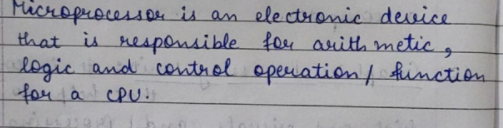 Microprocessor is an electronic device
that is responsible for arith metic,
logic and control operation/ function
for a CPU.